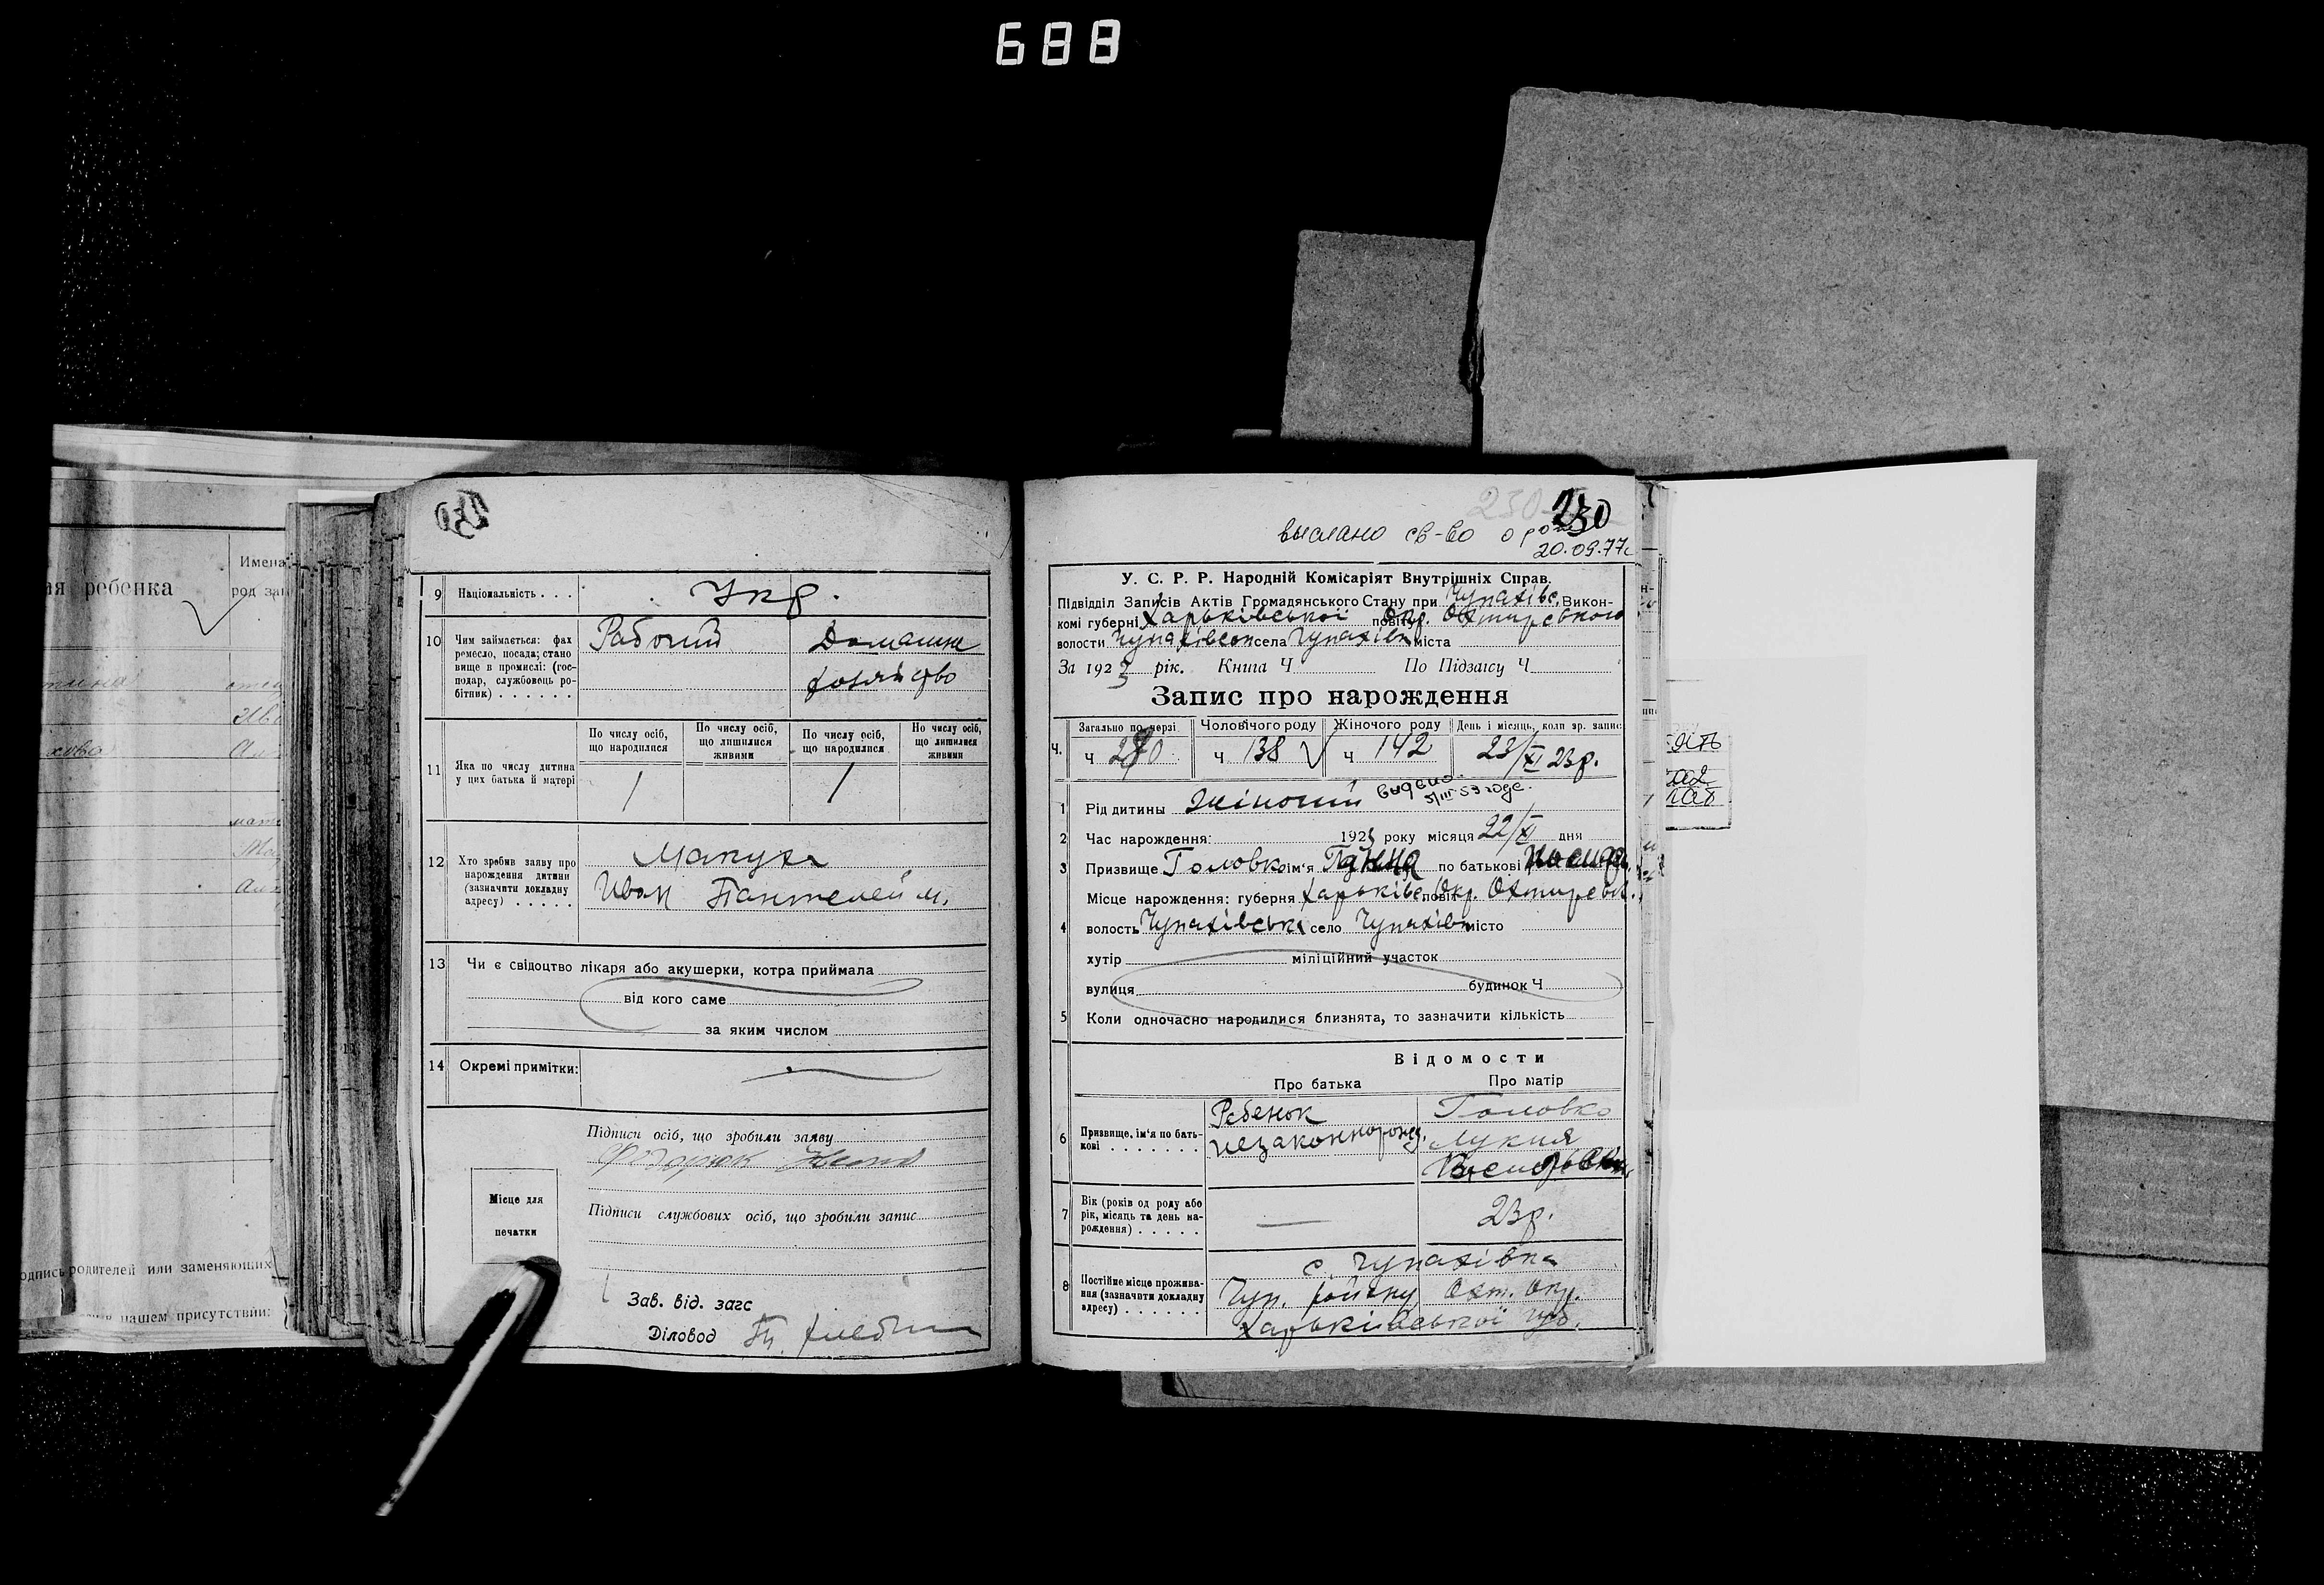 688
ая ребенка
Имена
род зан
одпись родителей или заменяющих
нашем присутствии:
9 Національність . . . Укр.
10 Чим займається: фах ремесло, посада; становище в промислі: (господар, службовець робітник) . . . . . .
Рабочий
Домашнє
хозяйство
11 Яка по числу дитина у цих батька й матері
По числу осіб, що народилися
По числу осіб, що лишилися живими
По числу осіб, що народилися
Но числу осіб, що лишилися живими
1
1
12 Хто зробив заяву про нарождення дитини (зазначити докладну адресу) . . . . .
Макуха
Иван Пантелейм.
13 Чи є свідоцтво лікаря або акушерки, котра приймала
від кого саме
за яким числом
14 Окремі примітки:
Підписи осіб, що зробили заяву
Місце для
печатки
Підписи службових осіб, що зробили запис
Зав. від. загс
Діловод
230
230
выслано св-во о рожд
20.09.77г
У. С. Р. Р. Народній Комісаріят Внутрішніх Справ.
Підвідділ Записів Актів Громадянського Стану при Чупахівс. Викон-
комі губерні Харьківської повіту Окр. Охтирського
волости Чупахівськ села Чупахівк міста
За 1923 рік. Книга Ч По Підзагсу Ч
Запис про нарождення
Ч. Загально по черзі Чоловічого роду Жіночого роду День і місяць, коли зр. запис
ч 280 ч 138 ч 142 23/XI 23р.
1 Рід дитини Жіночий выдано
5/III 53 годе.
2 Час нарождення: 1923 року місяця 22/XI дня
3 Призвище Головко ім'я по батькові
Місце нарождення: губерня Харьківс повіт Окр. Охтирськ.
4 волость Чупахівська село Чупахівк місто
хутір міліційний участок
вулиця будинок Ч
5 Коли одночасно народилися близнята, то зазначити кількість
Відомости
Про батька Про матір
6 Призвище, ім'я по батькові . . . . . . .
Ребенок
незаконнорожд.
Головко
Лукия
7 Вік (років од роду або рік, місяць та день народження) . . . . .
23р.
8 Постійне місце проживання (зазначити докладну адресу) . . . . . .
с. Чупахівка
Чуп. району Охт. Окр.
Харьківської губ.